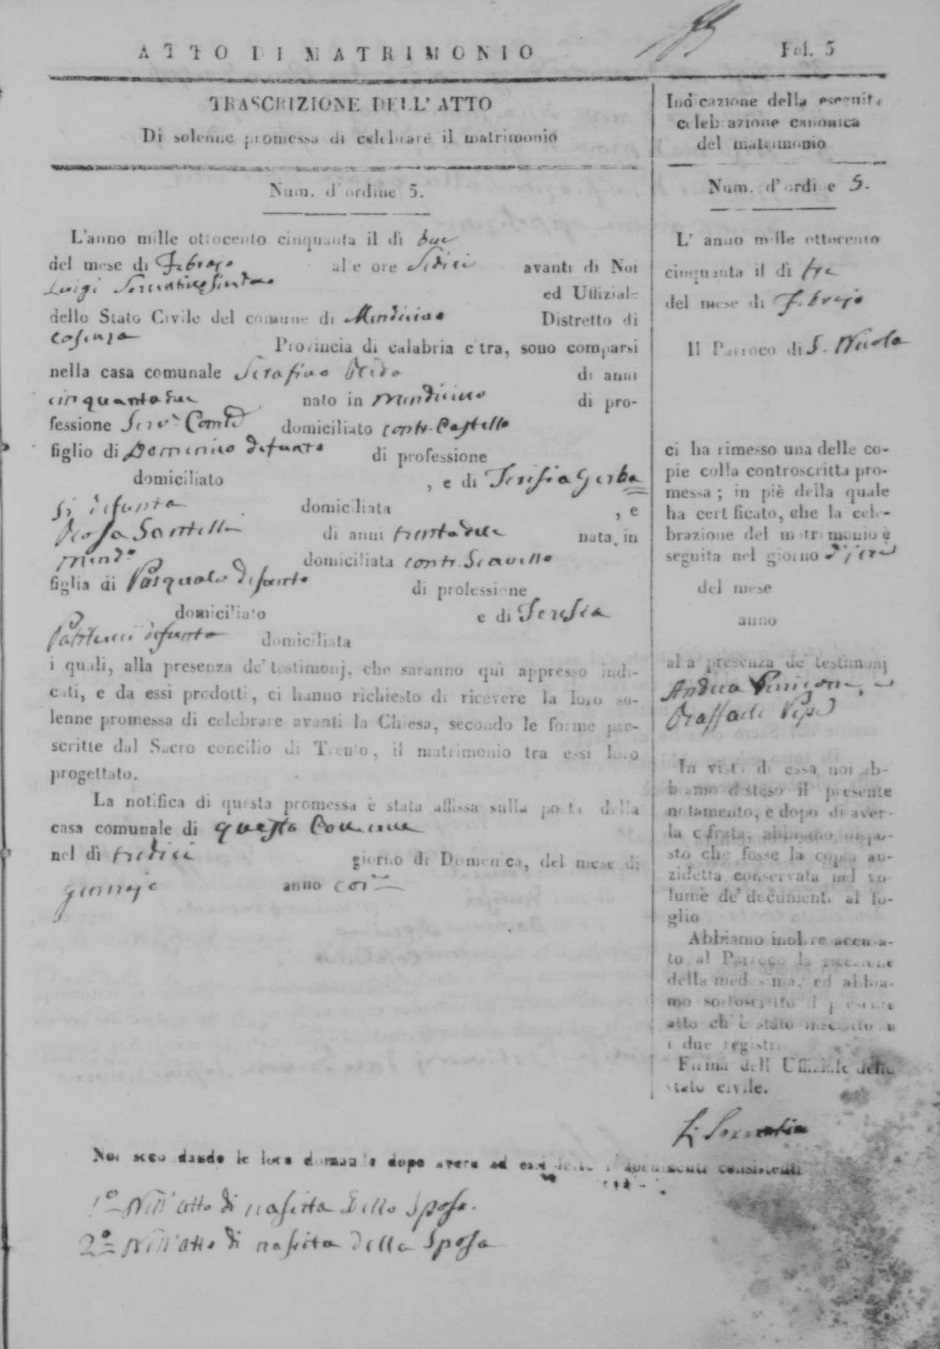 ATTO DI MATRIMONIO
Fol. 5
TRASCRIZIONE DELL' ATTO
Di solenne promessa di celebrare il matrimonio
Num. d'ordine 5.
L'anno mille ottocento cinquanta il dì due
del mese di Febrajo alle ore Sedici avanti di Noi
Luigi Sindaco ed Uffiziale
dello Stato Civile del comune di Mendicino Distretto di
Cosenza Provincia di calabria citra, sono comparsi
nella casa comunale Serafino di anni
cinquantadue nato in Mendicino di pro-
fessione domiciliato contr. Castello
figlio di Domenico defunto di professione
domiciliato , e di Teresia Gerba
si defunta domiciliata , e
Rosa Santelli di anni trentadue nata in
Mend.o domiciliata contr.
figlia di Pasquale defunto di professione
domiciliato e di Teresia
defunta domiciliata
i quali, alla presenza de' testimonj, che saranno quì appresso indi-
cati, e da essi prodotti, ci hanno richiesto di ricevere la loro so-
lenne promessa di celebrare avanti la Chiesa, secondo le forme pre-
scritte dal Sacro concilio di Trento, il matrimonio tra essi loro
progettato.
La notifica di questa promessa è stata affissa sulla porta della
casa comunale di questo Comune
nel dì tredici giorno di Domenica, del mese di
Gennajo anno
Indicazione della eseguita
celebrazione canonica
del matrimonio
Num. d'ordine 5.
L' anno mille ottocento
cinquanta il dì tre
del mese di Febrajo
Il Parroco di S. Nicola
ci ha rimesso una delle co-
pie colla controscritta pro-
messa; in piè della quale
ha certificato, che la cele-
brazione del matrimonio è
seguita nel giorno di jeri
del mese
anno
alla presenza de' testimonj
Andrea
Raffaele Pepe
In vista di essa noi ab-
biamo disteso il presente
notamento, e dopo di aver-
la cifrata, abbiamo dispo-
sto che fosse la copia an-
zidetta conservata nel vo-
lume de' documenti al fo-
glio
Abbiamo inoltre accusa-
to al Parroco la ricezione
della medesima, ed abbia-
mo sottoscritto il presente
atto ch' è stato inscritto in
i due registri
Firma dell' Uffiziale dello
stato civile.
Noi secondando le loro domande dopo avere ad essi letto i documenti consistenti
1.o Nell'atto di nascita dello Sposo.
2.o Nell'atto di nascita della Sposa